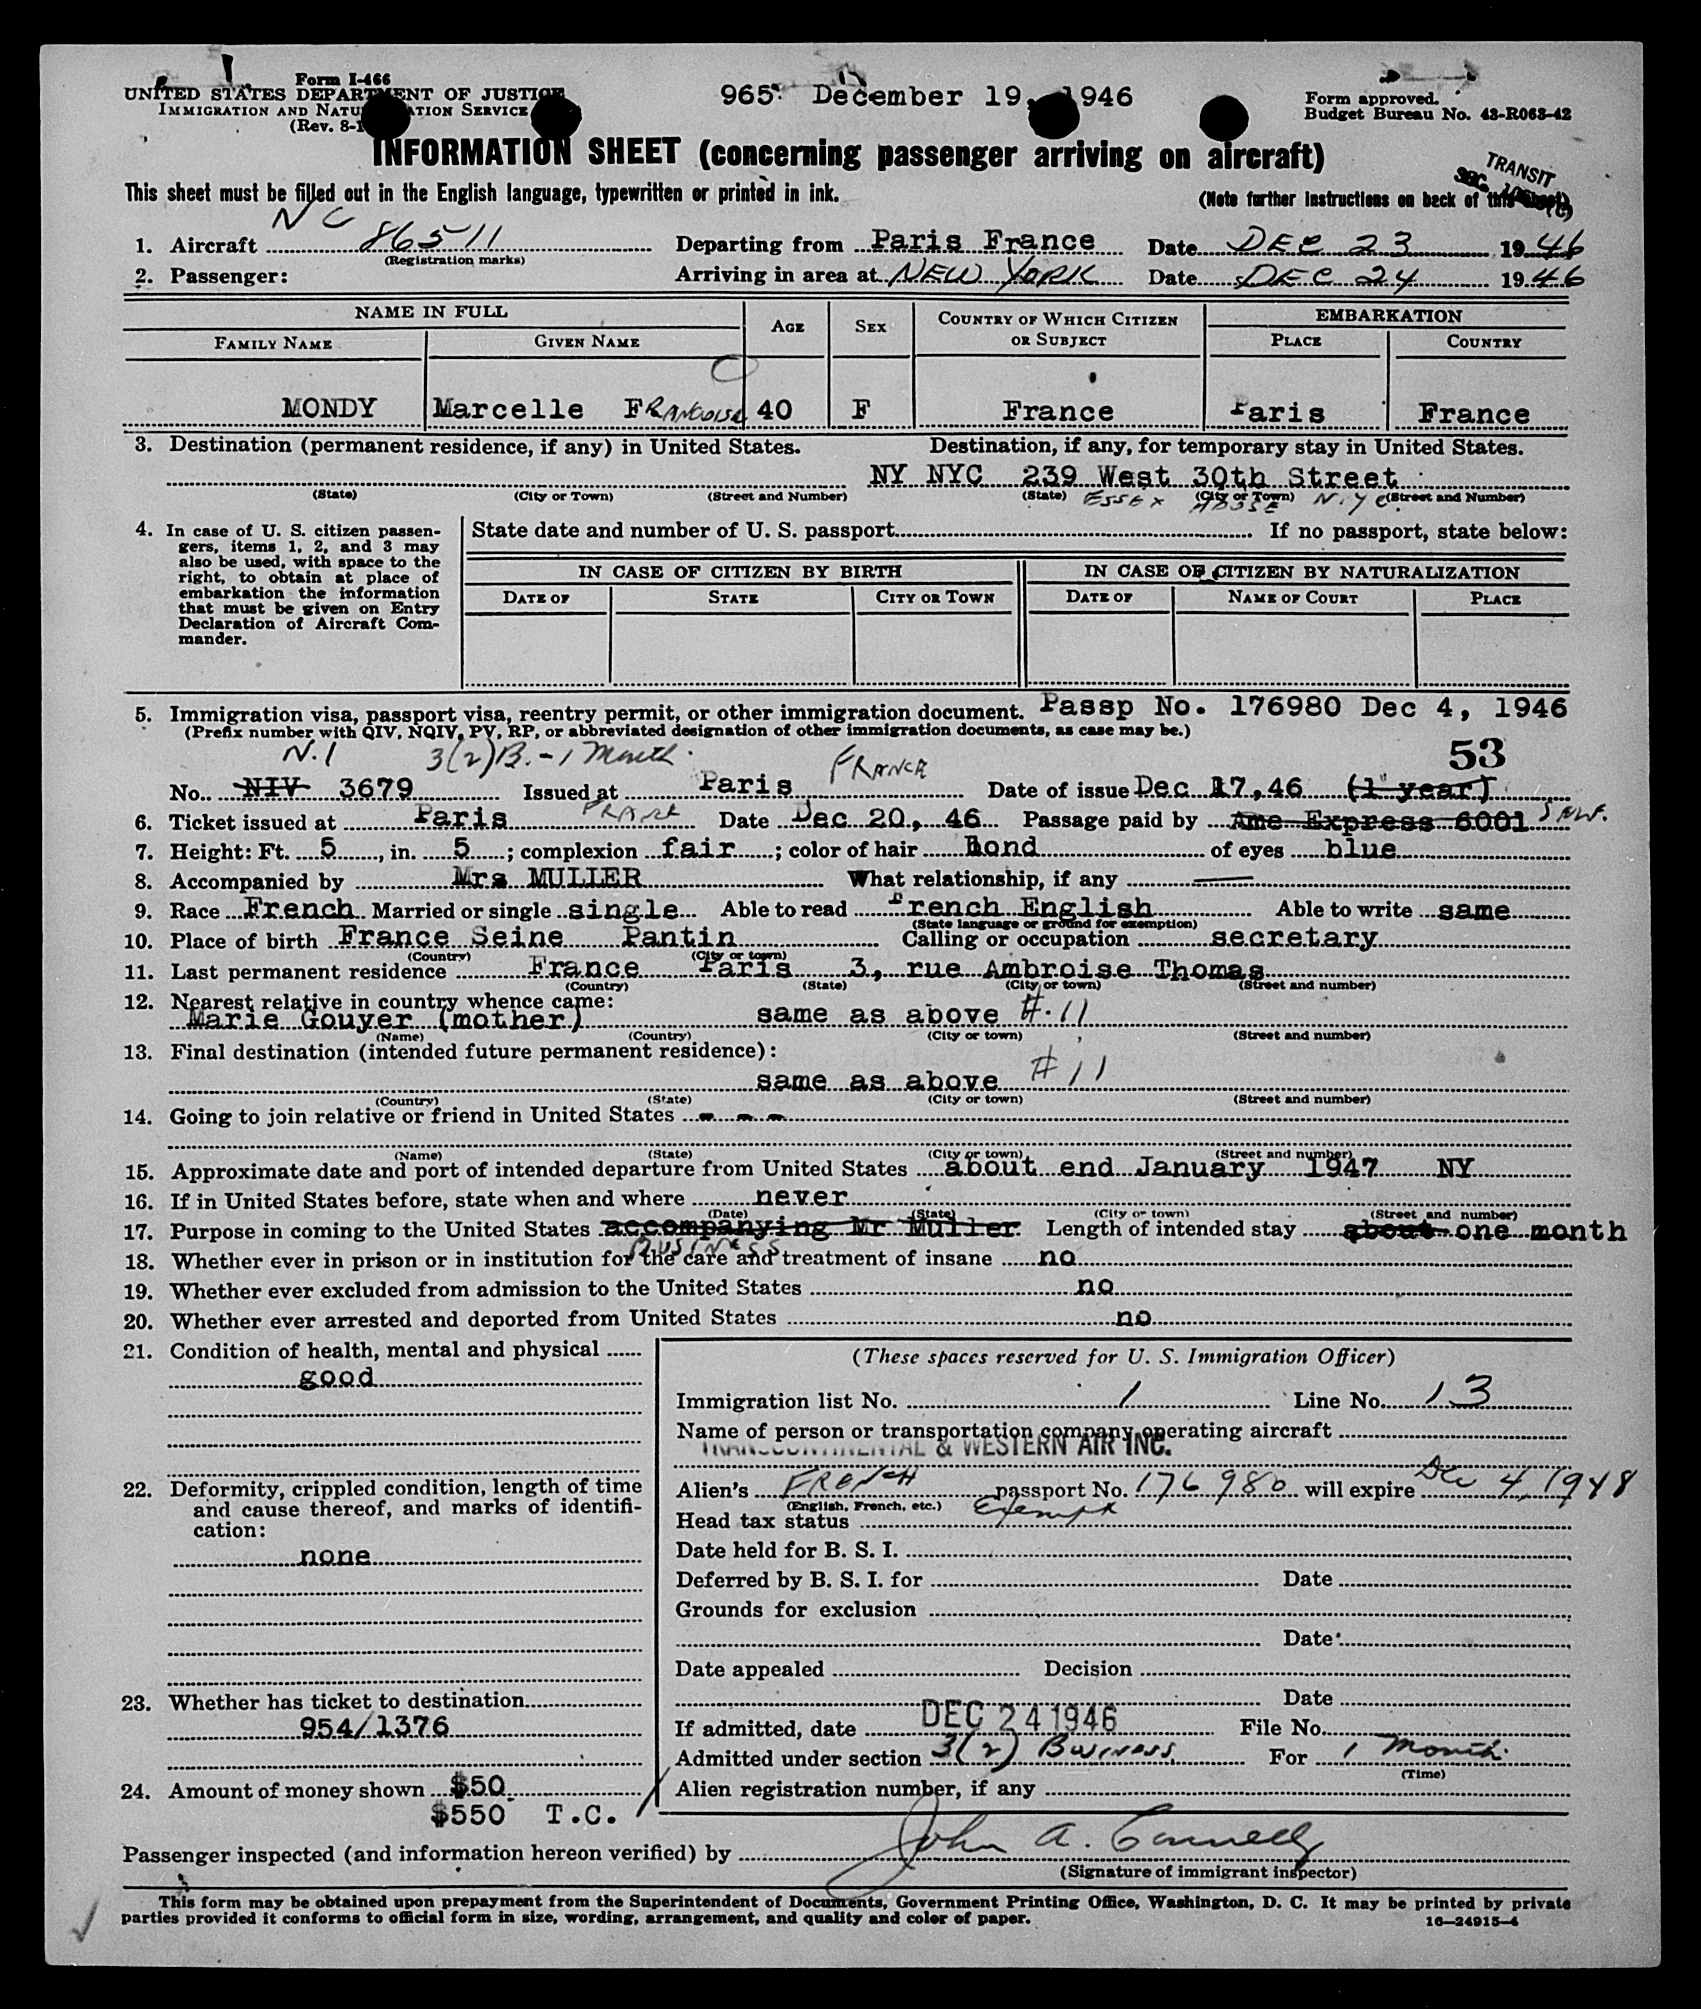 Form I-466
UNITED STATES DEPARTMENT OF JUSTICE
IMMIGRATION AND NATU ATION SERVICE
(Rev. 8-1
965 December 19, 1946
Form approved.
Budget Bureau No. 43-R063-42
INFORMATION SHEET (concerning passenger arriving on aircraft)
TRANSIT
This sheet must be filled out in the English language, typewritten or printed in ink.
(Note further instructions on back of this sheet)
1. Aircraft NC 86511 Departing from Paris France Date DEC 23 1946
(Registration marks)
2. Passenger: Arriving in area at NEW YORK Date DEC 24 1946
NAME IN FULL AGE SEX COUNTRY OF WHICH CITIZEN OR SUBJECT EMBARKATION
FAMILY NAME GIVEN NAME PLACE COUNTRY
MONDY Marcelle FRANCOISE 40 F France Paris France
3. Destination (permanent residence, if any) in United States. Destination, if any, for temporary stay in United States.
NY NYC 239 West 30th Street
(State) (City or Town) (Street and Number) (State) (City or Town) (Street and Number)
ESSEX HOUSE N.Y.C.
4. In case of U. S. citizen passen- State date and number of U. S. passport If no passport, state below:
gers, items 1, 2, and 3 may
also be used, with space to the
right, to obtain at place of
embarkation the information
that must be given on Entry
Declaration of Aircraft Com-
mander.
IN CASE OF CITIZEN BY BIRTH IN CASE OF CITIZEN BY NATURALIZATION
DATE OF STATE CITY OR TOWN DATE OF NAME OF COURT PLACE
5. Immigration visa, passport visa, reentry permit, or other immigration document. Passp No. 176980 Dec 4, 1946
(Prefix number with QIV, NQIV, PV, RP, or abbreviated designation of other immigration documents, as case may be.)
N.I 3(2)B. - 1 Month FRANCE 53
No. NIV 3679 Issued at Paris Date of issue Dec 17,46 (1 year)
6. Ticket issued at Paris FRANCE Date Dec 20, 46 Passage paid by Ame Express 6001
7. Height: Ft. 5, in. 5; complexion fair; color of hair Bond of eyes blue
8. Accompanied by Mrs MULLER What relationship, if any
9. Race French Married or single single Able to read French English Able to write same
(State language or ground for exemption)
10. Place of birth France Seine Pantin Calling or occupation secretary
(Country) (City or town)
11. Last permanent residence France Paris 3, rue Ambroise Thomas
(Country) (State) (City or town) (Street and number)
12. Nearest relative in country whence came:
Marie Gouyer (mother) same as above #.11
(Name) (Country) (City or town) (Street and number)
13. Final destination (intended future permanent residence):
same as above #11
(Country) (State) (City or town) (Street and number)
14. Going to join relative or friend in United States - - -
(Name) (State) (City or town) (Street and number)
15. Approximate date and port of intended departure from United States about end January 1947 NY
16. If in United States before, state when and where never
(Date) (State) (City or town) (Street and number)
17. Purpose in coming to the United States accompanying Mr Muller Length of intended stay about one month
BUSINESS
18. Whether ever in prison or in institution for the care and treatment of insane no
19. Whether ever excluded from admission to the United States no
20. Whether ever arrested and deported from United States no
21. Condition of health, mental and physical
good
22. Deformity, crippled condition, length of time
and cause thereof, and marks of identifi-
cation:
none
23. Whether has ticket to destination
954/1376
24. Amount of money shown $50
$550 T.C.
(These spaces reserved for U. S. Immigration Officer)
Immigration list No. 1 Line No. 13
Name of person or transportation company operating aircraft
TRANSCONTINENTAL & WESTERN AIR INC.
Alien's FRENCH passport No. 176980 will expire Dec 4, 1948
(English, French, etc.)
Head tax status Exempt
Date held for B. S. I.
Deferred by B. S. I. for Date
Grounds for exclusion
Date
Date appealed Decision
Date
If admitted, date DEC 24 1946 File No.
Admitted under section 3(2) Business For 1 Month
(Time)
Alien registration number, if any
Passenger inspected (and information hereon verified) by John A. Connelly
(Signature of immigrant inspector)
This form may be obtained upon prepayment from the Superintendent of Documents, Government Printing Office, Washington, D. C. It may be printed by private
parties provided it conforms to official form in size, wording, arrangement, and quality and color of paper.
16—24915-4